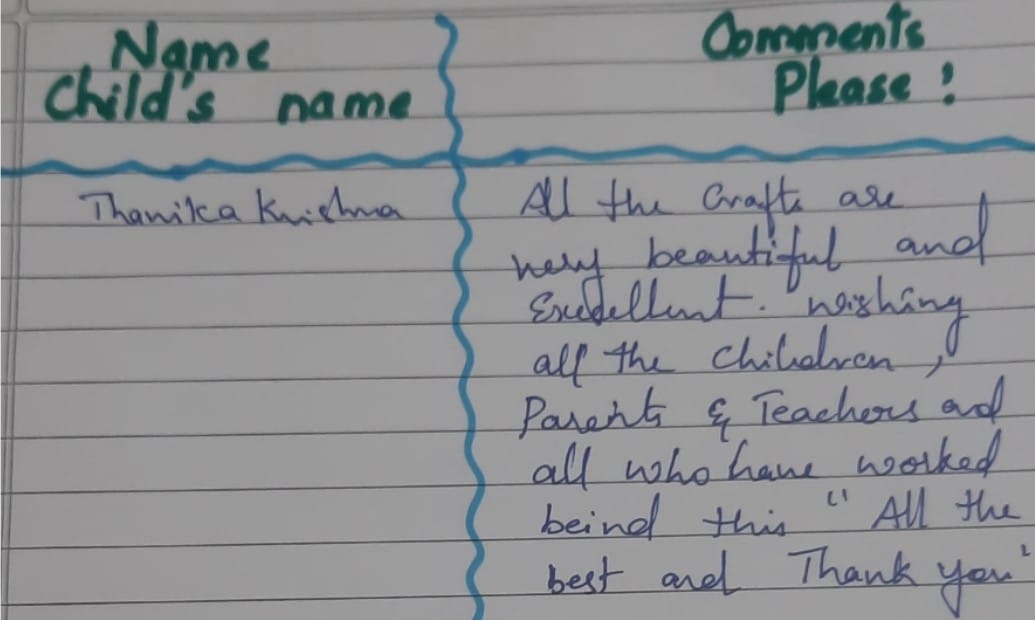 Name
Child's name
Comments
Please !
Thanika Krishna
All the Crafts are
very beautiful and
Excellent. wishing
all the Children,
Parents & Teachers and
all who have worked
beind this "All the
best and Thank you"